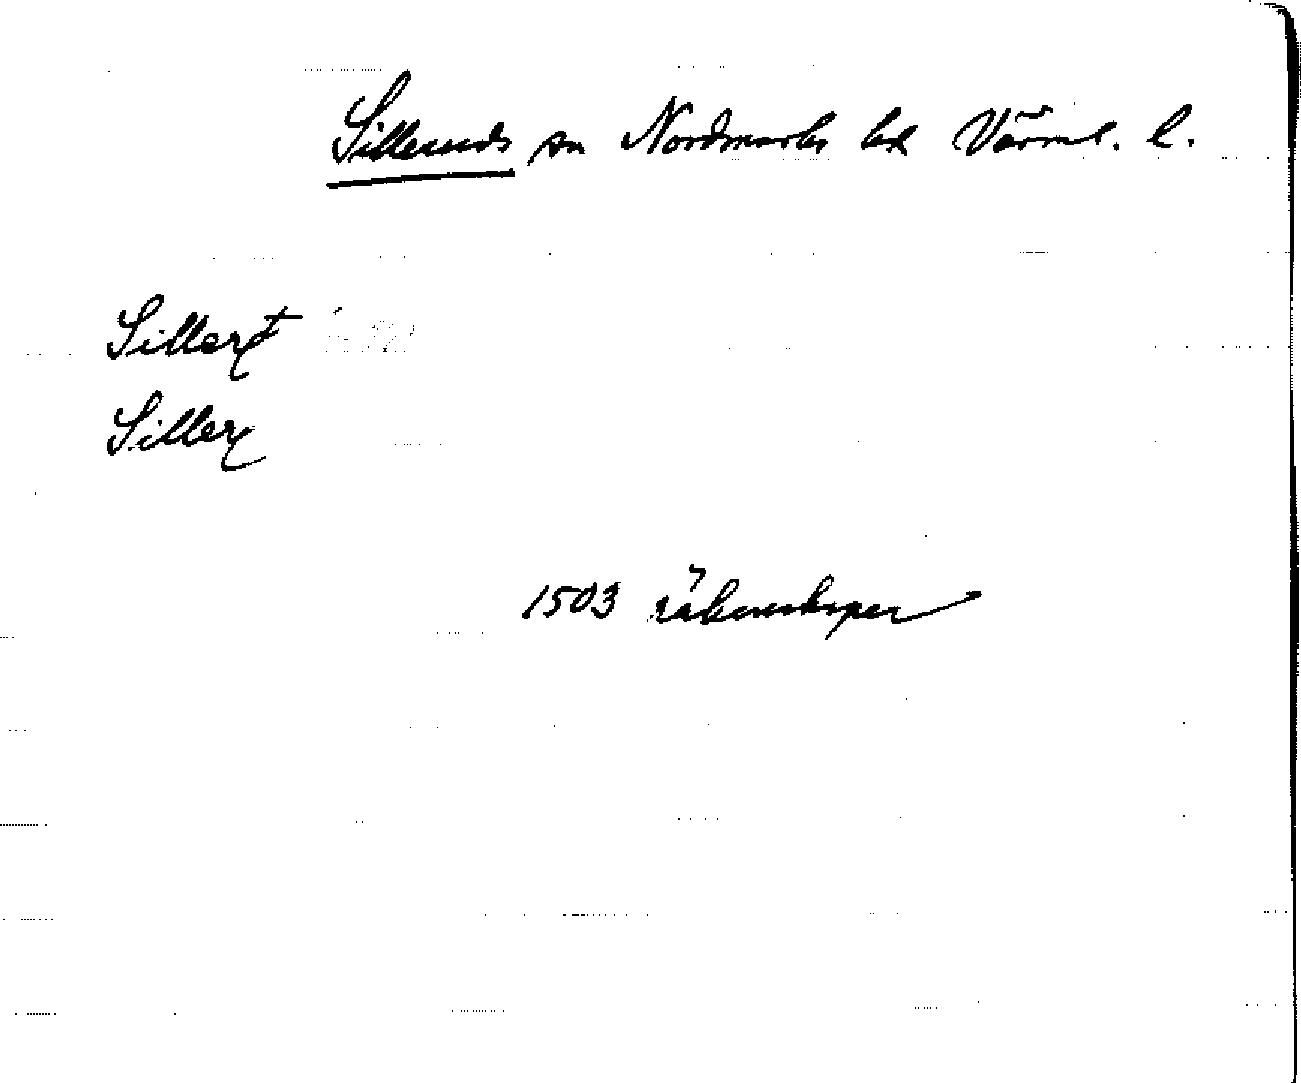 Silleruds sn Nordmarks hd Värml. l.
Siller
Siller
1503 räkenskaper